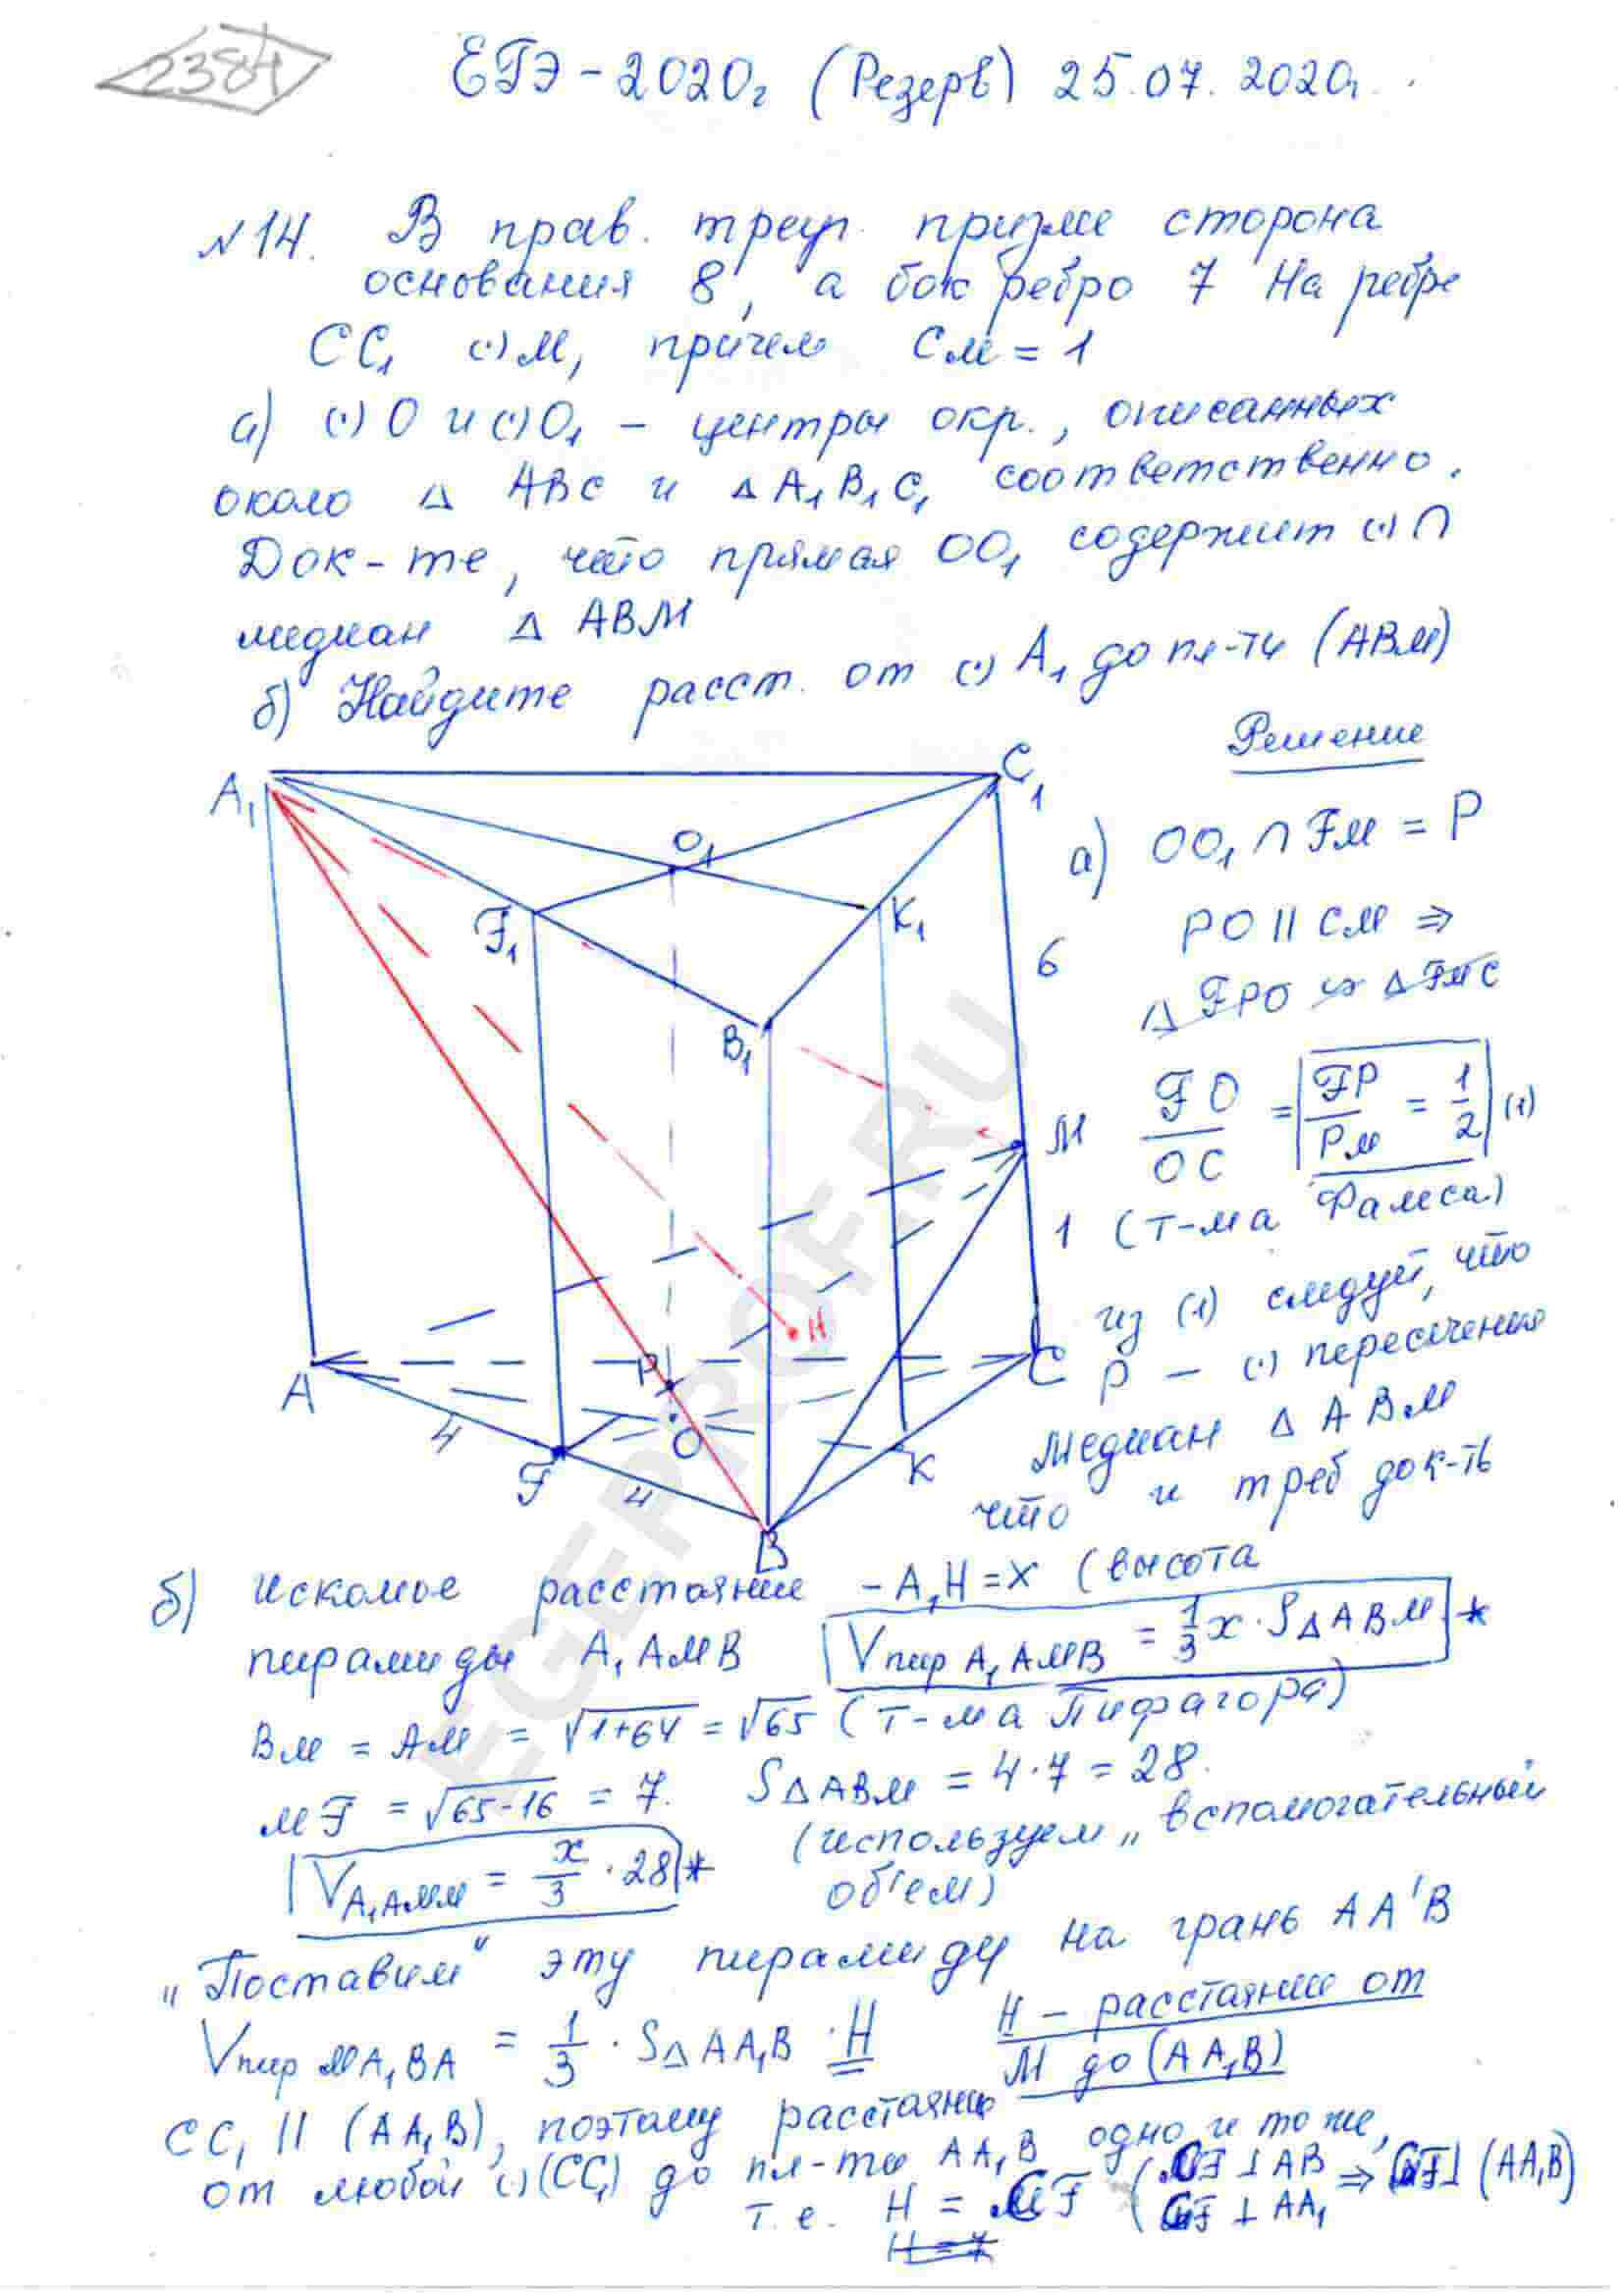 2384
ЕГЭ-2020г (Резерв) 25.07.2020г.
№14. В прав. треуг. призме сторона
основания 8, а бок ребро 7 На ребре
CC₁ (·)M, причем CM = 1
а) (·) O и (·) O₁ – центры окр., описанных
около △ ABC и △ A₁B₁C₁ соответственно.
Док-те, что прямая OO₁ содержит (·) ∩
медиан △ ABM
б) Найдите расст. от (·) A₁ до пл-ти (ABM)
Решение
A₁
C₁
O₁
F₁
K₁
B₁
6
M
1
H
A
P
O
C
4
F
4
K
B
а) OO₁ ∩ FM = P
PO || CM ⇒
△ FPO ∾ △ FMC
FO/OC = FP/PM = 1/2 (1)
(т-ма Фалеса)
из (1) следует, что
P – (·) пересечения
медиан △ ABM
что и треб док-ть
б) Искомое расстояние – A₁H = x (высота
пирамиды A₁AMB Vпир A₁AMB = 1/3 x · S△ABM *
BM = AM = √1+64 = √65 (т-ма Пифагора)
MF = √65-16 = 7. S△ABM = 4·7 = 28.
(используем „вспомогательный
объем)
V A₁AMM = x/3 · 28 *
„Поставим" эту пирамиду на грань AA'B
Vпир MA₁BA = 1/3 · S△ AA₁B · H
H – расстояние от
M до (AA₁B)
CC₁ || (AA₁B), поэтому расстояние
от любой (·)(CC₁) до пл-ти AA₁B одно и то же,
т.е. H = CF (CF ⊥ AB
CF ⊥ AA₁ ⇒ CF ⊥ (AA₁B)
H = 7
EGEPROF.RU